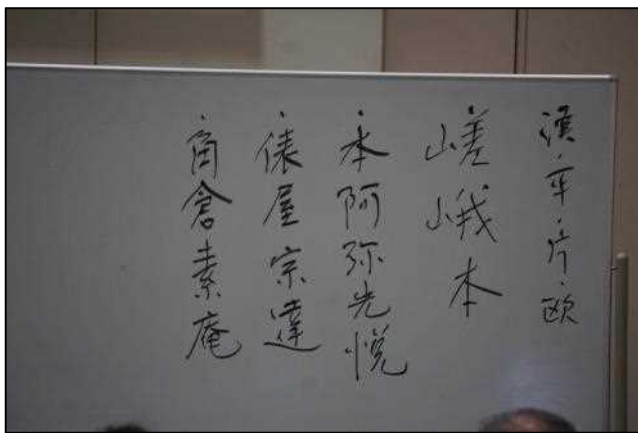 漢・平・片・欧
嵯峨本
・本阿弥光悦
・俵屋宗達
・角倉素庵